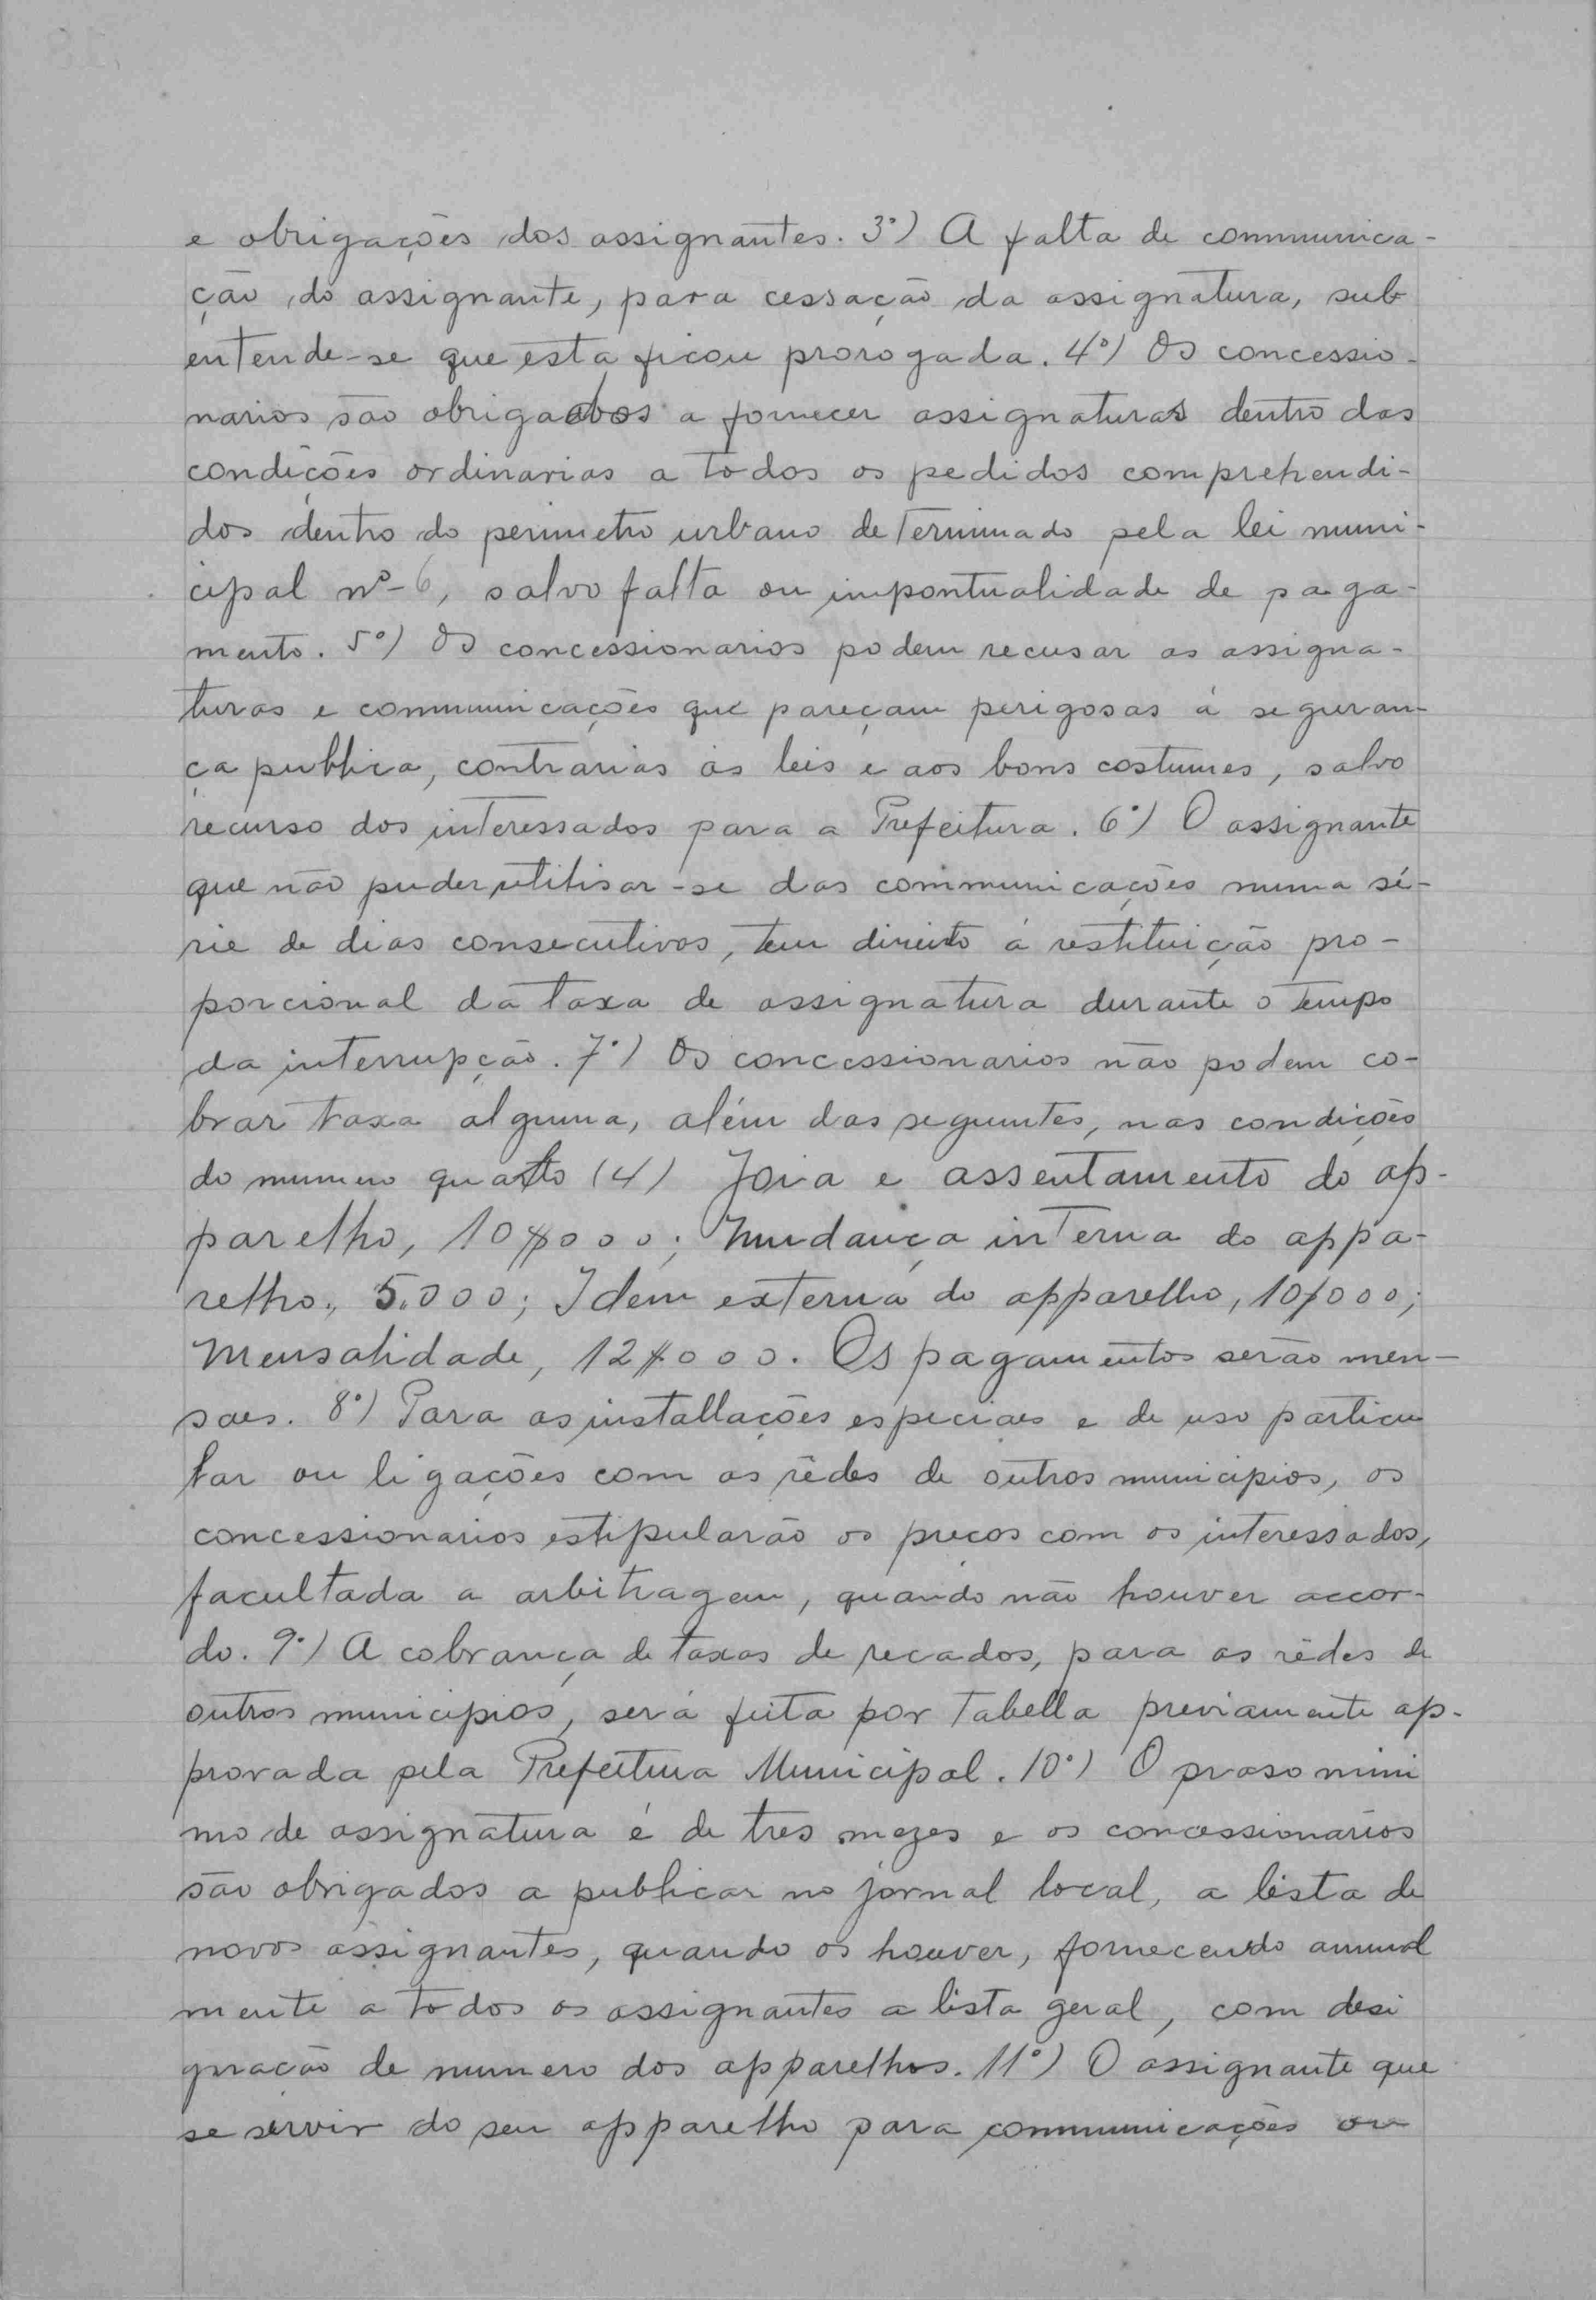 e obrigações dos assignantes. 3º) A falta de communica-
ção do assignante, para cessação da assignatura, sub
entende-se que esta ficou prorogada. 4º) Os concessio-
narios são obrigados a fornecer assignaturas dentro das
condições ordinarias a todos os pedidos comprehendi-
dos dentro do perimetro urbano determinado pela lei muni-
cipal nº 6, salvo falta ou impontualidade de paga-
mento. 5º) Os concessionarios podem recusar as assigna-
turas e communicações que pareçam perigosas á seguran-
ça publica, contrárias ás leis e aos bons costumes, salvo
recurso dos interessados para a Prefeitura. 6º) O assignante
que não puder utilisar-se das communicações numa sé-
rie de dias consecutivos, tem direito á restituição pro-
porcional da taxa de assignatura durante o tempo
da interrupção. 7º) Os concessionarios não podem co-
brar taxa alguma, além das seguintes, nas condições
do numero quatro (4) Joia e assentamento do ap-
parelho, 10$000; Mudança interna do appa-
relho, 5.000; Idem externa do apparelho, 10$000;
Mensalidade, 12$000. Os pagamentos serão men-
saes. 8º) Para as installações especiaes e de uso particu
lar ou ligações com as rêdes de outros municipios, os
concessionarios estipularão os preços com os interessados,
facultada a arbitragem, quando não houver accor-
do. 9º) A cobrança de taxas de recados, para as rêdes de
outros municipios, será feita por tabella previamente ap-
provada pela Prefeitura Municipal. 10º) O praso mini
mo de assignatura é de tres mezes e os concessionarios
são obrigados a publicar no jornal local, a lista de
novos assignantes, quando os houver, fornecendo annual
mente a todos os assignantes a lista geral, com desi
gnação de numero dos apparelhos. 11º) O assignante que
se servir do seu apparelho para communicações ou